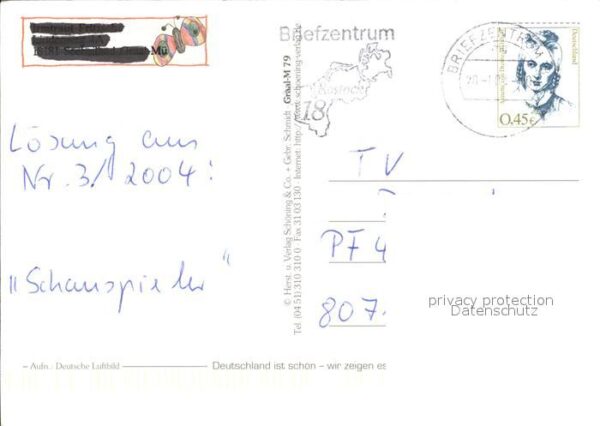 Briefzentrum
18
Rostock
BRIEFZENTRUM
Deutschland
0,45€
Lösung aus
Nr. 3/2004:
"Schauspieler"
TV
PF 4
807
© Herst. u. Verlag Schöning & Co. + Gebr. Schmidt
Graal-M 79
Tel. (04 51) 310 310 0 · Fax 31 03 130 · Internet: http://
privacy protection
Datenschutz
– Aufn.: Deutsche Luftbild
Deutschland ist schön – wir zeigen es